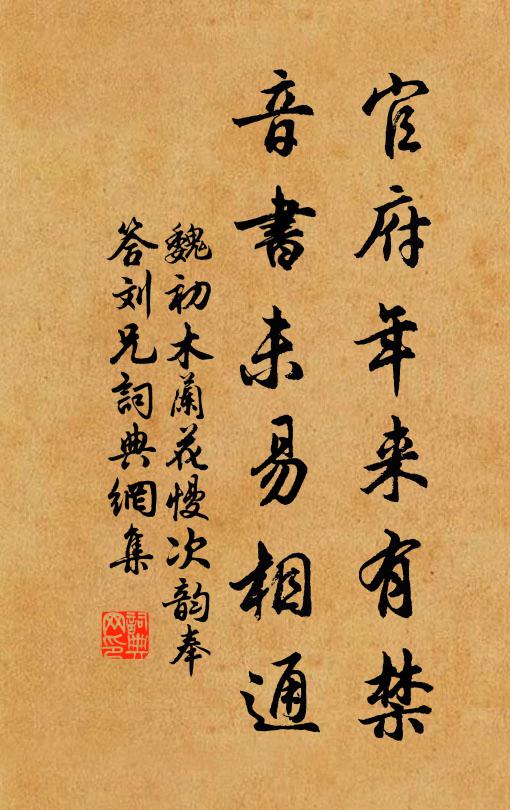 官府年来有禁
音書未易相通
魏初木蘭花慢次韵奉
答刘兄詞典網集
詞典网印